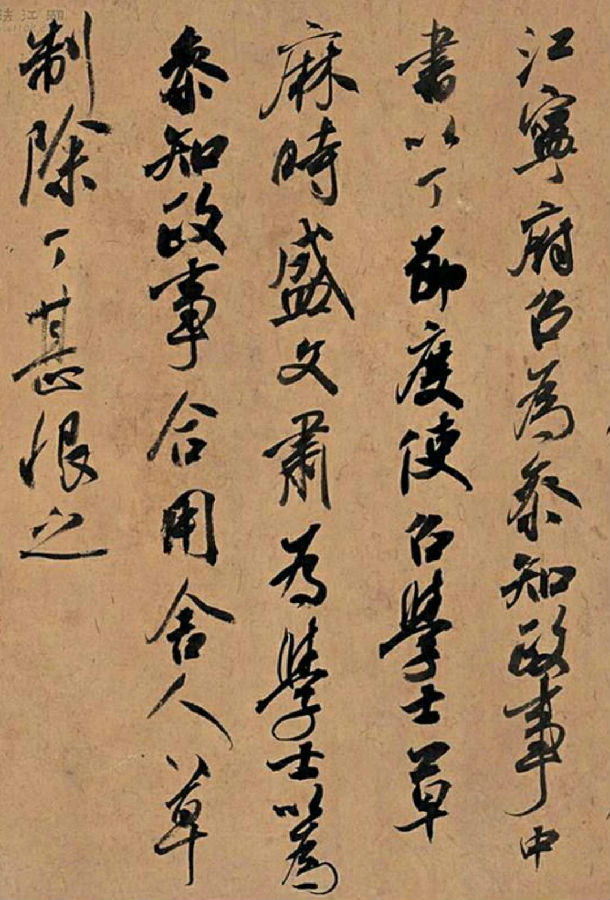 江寧府召為叅知政事中
書以丁節度使召學士草
麻時盛文肅為學士以為
叅知政事合用舍人草
制除丁甚恨之